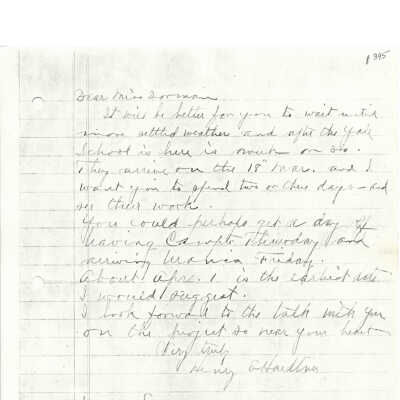 1395
Dear Miss Dorman
It will be better for you to wait until
more settled weather and after the Yale
School is here is a month or so.
They arrive on the 18" Mar. and I
want you to spend two or three days - and
see their work.
You could perhaps get a day off
leaving Thursday and
arriving Urania Friday.
About Apr. 1 is the earliest date
I would suggest.
I look forward to the talk with you
on the project so near your heart
Very truly
Henry Hardtner